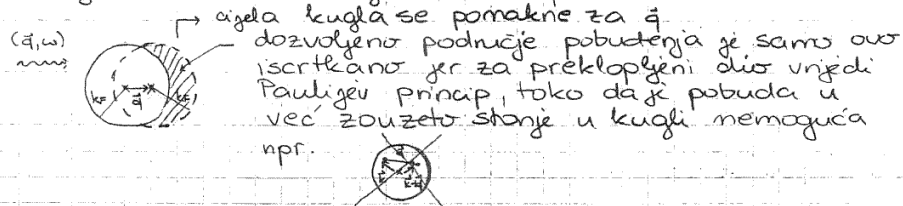 cijela kugla se pomakne za q⃗
(q⃗,ω) dozvoljeno područje pobuđenja je samo ovo
iscrtkano jer za preklopljeni dio vrijedi
Paulijev princip, tako da je pobuda u
već zauzeto stanje u kugli nemoguća
npr.
kF q⃗ kF